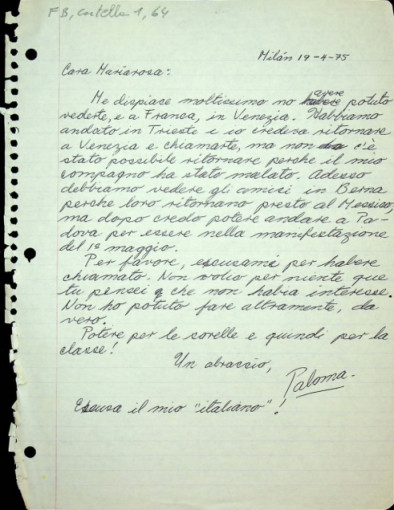 FB, cartella 1, 64
Milán 19-4-75
Cara Mariarosa:
Me dispiase moltissimo no habere avere potuto
vederte, e a Franca, in Venezia. Habbiamo
andato in Trieste i io credeva ritornare
a Venezia e chiamarte, ma non da c'é
stato possibile ritornare perche il mio
compagno ha stato malato. Adesso
debbiamo vedere gli amici in Berna
perche loro ritornano presto al Messico,
ma dopo credo potere andare a Pa-
dova per essere nella manifestazione
del 1º maggio.
Per favore, escusami per habere
chiamato. Non volio per niente que
tu pensei q che non habia interesse.
Non ho potuto fare altramente, da
vero.
Potere per le sorelle e quindi per la
classe!
Un abraccio,
Paloma-
Escusa il mio "italiano"!